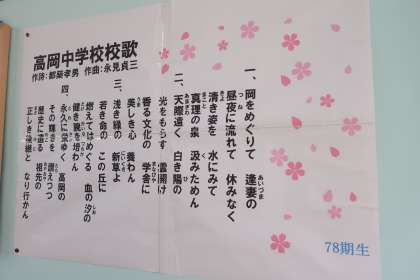 高岡中学校校歌
作詩:都築孝男 作曲:永見貞三
一、岡をめぐりて 逢妻の
昼夜に流れて 休みなく
清き姿を 水にみて
真理の泉 汲みためん
二、天際遠く 白き陽の
光をもらす 雲開け
香る文化の 学舎に
美しき心 養わん
三、浅き緑の 新草よ
若き命の この丘に
燃えてはめぐる 血の汐の
健き腕を 培わん
四、永久に ゆく 高岡の
その輝きを 讃えつつ
歴史に 祖先の
正しき後継と なり行かん
78期生